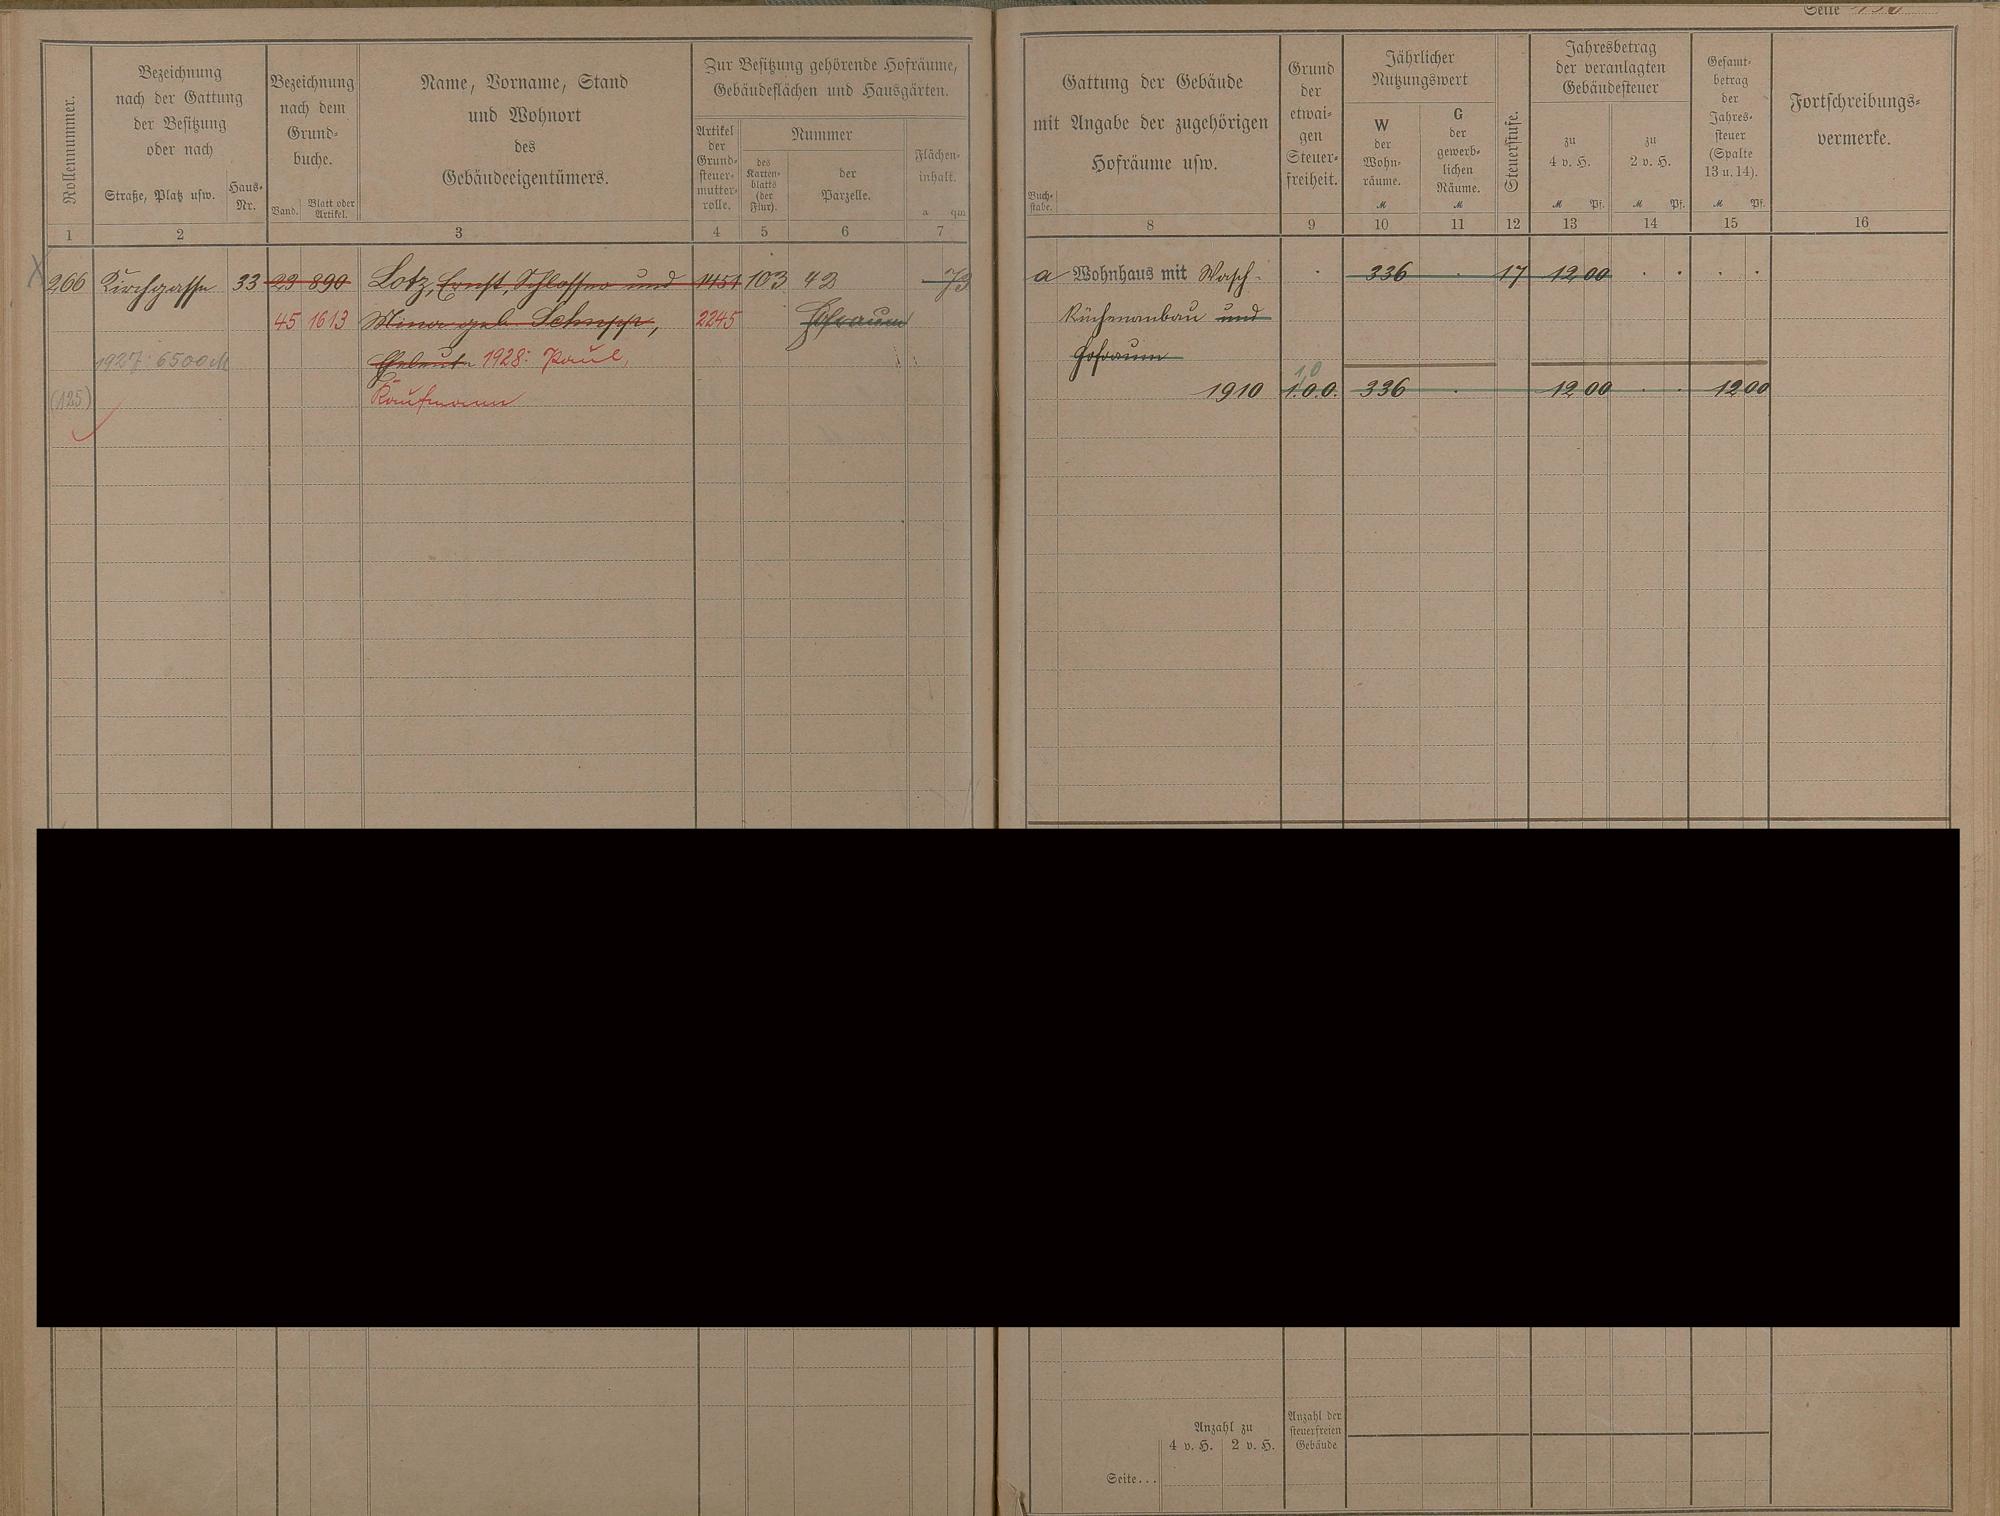 Seite
Rollennummer.
Bezeichnung
nach der Gattung
der Besitzung
oder nach
Straße, Platz usw.
Haus-
Nr.
Bezeichnung
nach dem
Grund-
buche.
Band.
Blatt oder
Artikel.
Name, Vorname, Stand
und Wohnort
des
Gebäudeeigentümers.
Zur Besitzung gehörende Hofräume,
Gebäudeflächen und Hausgärten.
Artikel
der
Grund-
steuer-
mutter-
rolle.
Nummer
des
Karten-
blatts
(der
Flur).
der
Parzelle.
Flächen-
inhalt.
a qm
1 2 3 4 5 6 7
266 Kirchgasse 33 23 890 Lotz, Ernst, Schlosser und 1451 103 42 73
45 1613 Mina geb. Schnepp, 2245 Hofraum
1927: 6500 M Eheleute 1928: Paul,
(125) Kaufmann
Gattung der Gebäude
mit Angabe der zugehörigen
Hofräume usw.
Buch-
stabe.
Grund
der
etwai-
gen
Steuer-
freiheit.
Jährlicher
Nutzungswert
W
der
Wohn-
räume.
M
G
der
gewerb-
lichen
Räume.
M
Steuerstufe.
Jahresbetrag
der veranlagten
Gebäudesteuer
zu
4 v. H.
M Pf.
zu
2 v. H.
M Pf.
Gesamt-
betrag
der
Jahres-
steuer
(Spalte
13 u. 14).
M Pf.
Fortschreibungs-
vermerke.
8 9 10 11 12 13 14 15 16
a Wohnhaus mit Wasch- 336 17 12 00
küchenanbau und
Hofraum
1,0
1910 1.0.0. 336 12 00 12 00
Anzahl zu
4 v. H. 2 v. H.
Anzahl der
steuerfreien
Gebäude
Seite...